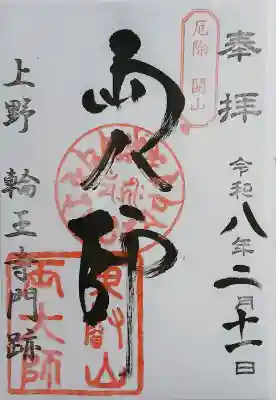 奉拝
令和八年二月十一日
厄除 開山
両大師
東叡山
両大師
上野 輪王寺門跡